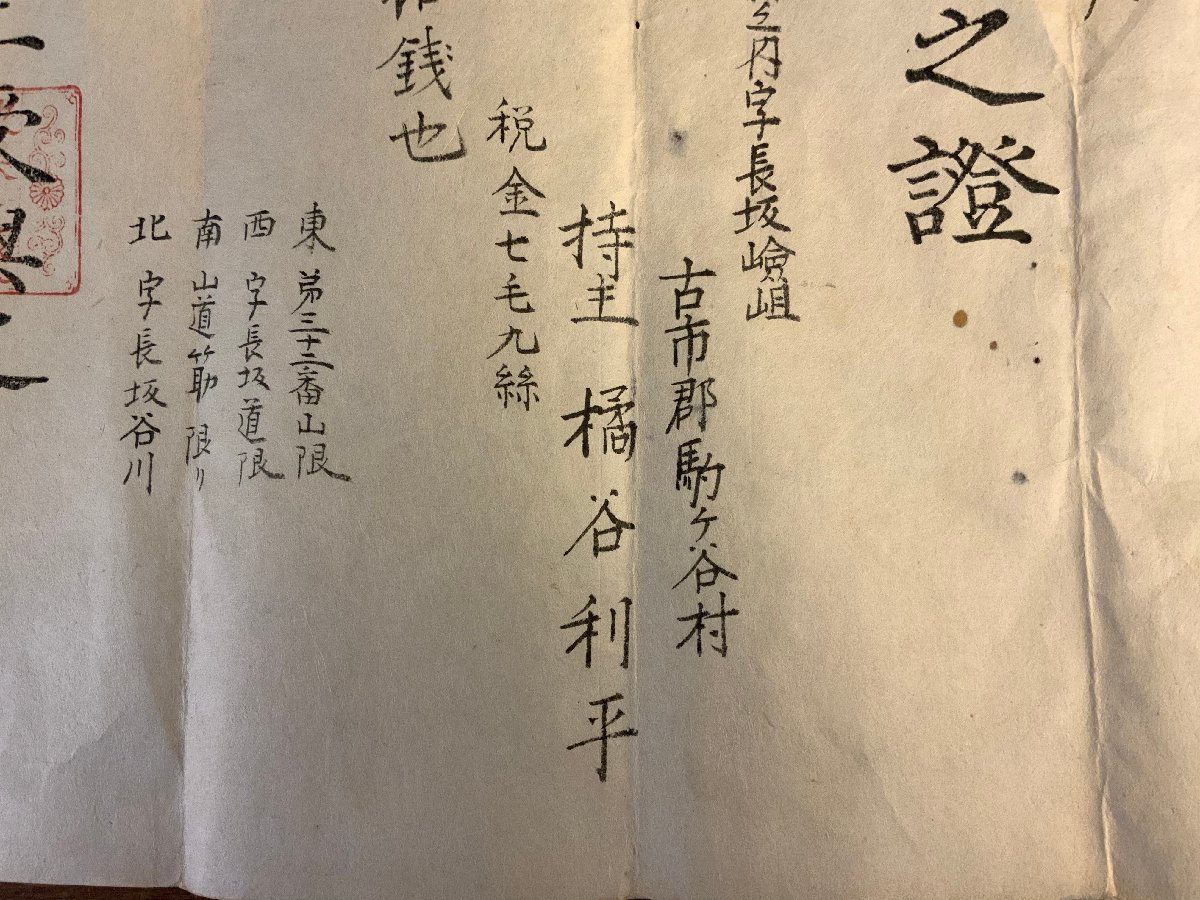 之證
之内字長坂嶮岨
古市郡駒ヶ谷村
持主 橘谷利平
税金七毛九絲
銭也
東 第三十二番山限
西 字長坂道限
南 山道筋限リ
北 字長坂谷川